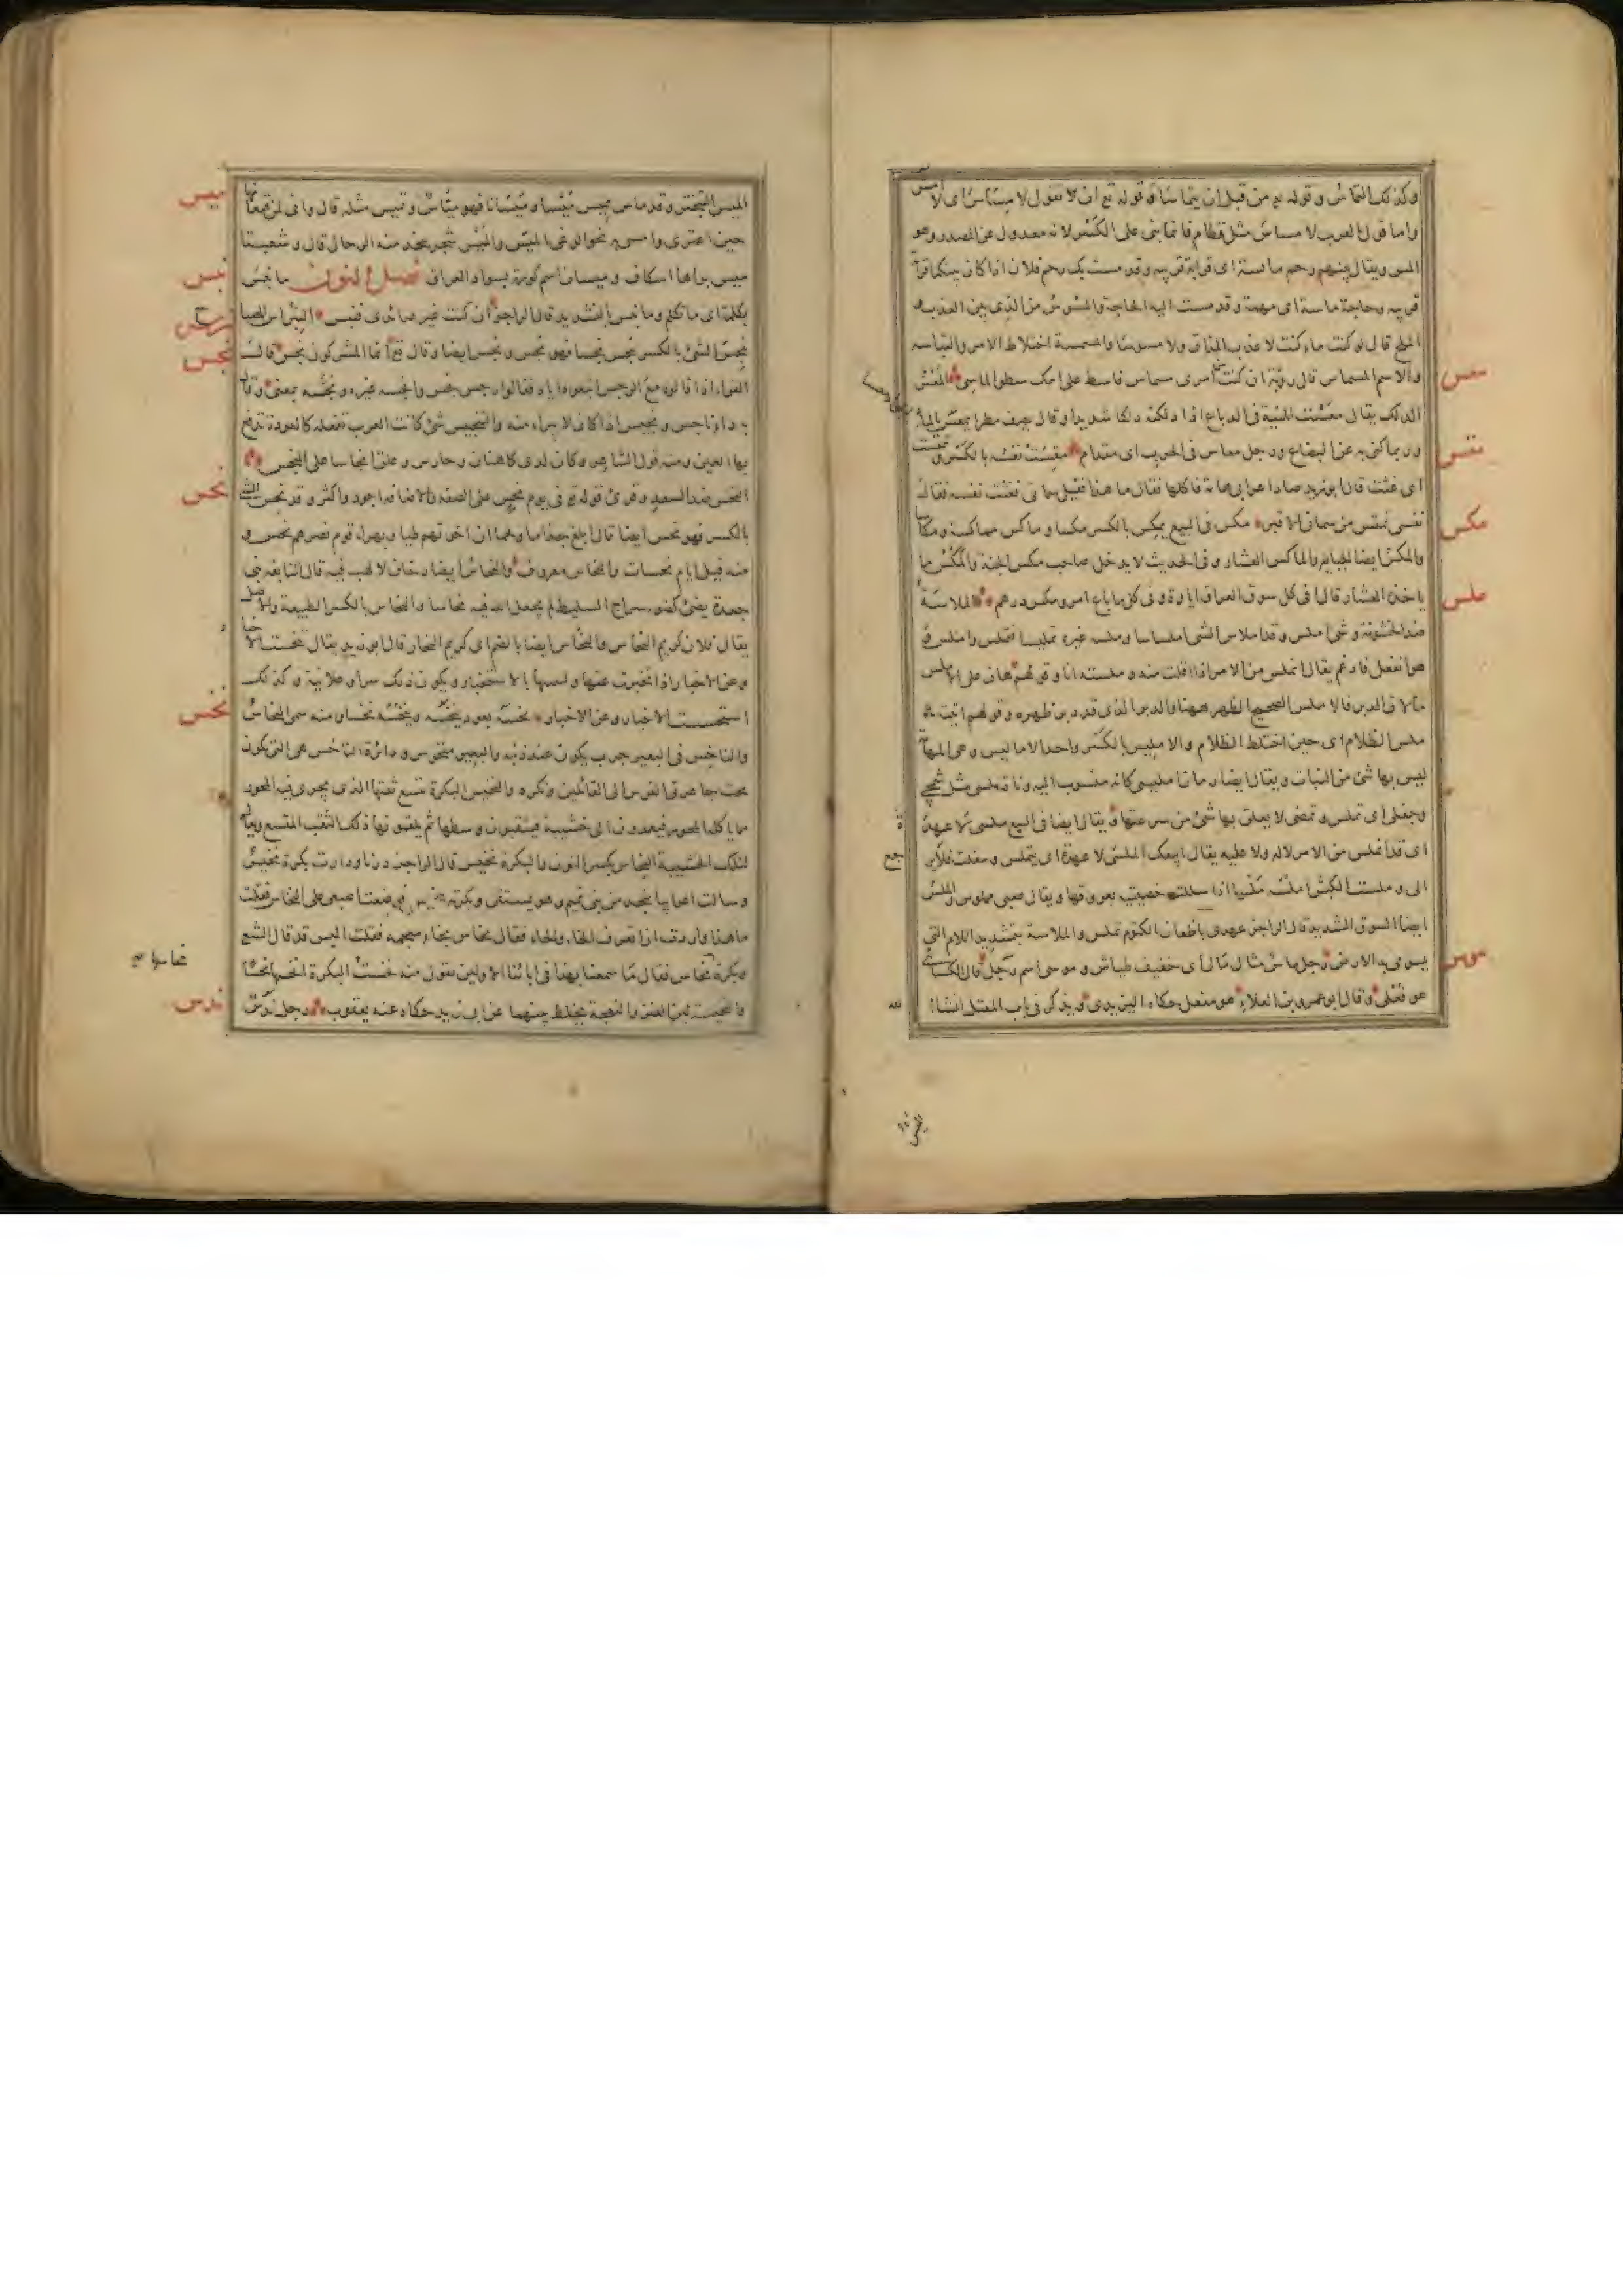 وكذلك التماس وقوله تع من قبل ان يتماسا وقوله تع ان لا تقول لا مساس اى لا امس
واما قول العرب لا مساس مثل قطام فانما بنى على الكسر لانه معدول عن المصدر وهو
المس ويقال بينهم رحم ماسة اى قرابة قريبة وقد مست بك رحم فلان اذا كان بينكما قرابة
قريبة وحاجة ماسة اى مهمة وقد مست اليه الحاجة والمسوس من الذى بين العذب و
الملح قال لو كنت ماء كنت لا عذب المذاق ولا مسوسا والمسمسة اختلاط الامر والتباسه
والاسم المسماس قال رؤبة ان كنت من امرى مسماس فاسط على امك سطو الماسى المعس
الدلك يقال معست المنية فى الدباغ اذا دلكته دلكا شديدا وقال يصف مطرا يمعس بالماء
وربما كنى به عن البضاع ورجل معاس فى الحرب اى مقدام مقست نفسه بالكسر وتمقست
اى غثت قال ابو زيد صاد اعرابى هامة فاكلها فقال ما هذا فقيل سمانى فغثت نفسه فقال
نفسى تمقس من سمانى الاقبر مكس فى البيع يمكس بالكسر مكسا وماكس مماكسة ومكاسا
والمكس ايضا الجباية والماكس العشار وفى الحديث لا يدخل صاحب مكس الجنة والمكس ما
ياخذه العشار قال افى كل سوق العراق اتاوة وفى كل ما باع امرؤ مكس درهم الملاسة
ضد الخشونة وشئ املس وقد املاس الشئ املساسا وملسه غيره تمليسا فتملس واملس و
هو انفعل فادغم يقال انملس من الامر اذا افلت منه وملسته انا وقولهم هان على الاملس
ما لاقى الدبر فالاملس الصحيح الظهر ههنا والدبر الذى قد دبر ظهره وقولهم اتيته
ملس الظلام اى حين اختلط الظلام والامليس بالكسر واحد الاماليس وهى المهامه
ليس بها شئ من النبات ويقال ايضا رمان امليسى كانه منسوب اليه وناقة ملسى مثل شمجى
وجفلى اى تملس وتمضى لا يعلق بها شئ من سرعتها ويقال ايضا فى البيع ملسى لا عهدة
اى قد انملس من الامر لا له ولا عليه يقال ابيعك الملسى لا عهدة اى يتملس وينفلت فلا يرجع
الى وملست الكبش املسه ملسا اذا سللت خصييه بعروقهما ويقال صبى مملوس والملس
ايضا السوق الشديد قال الراجز عهدى باظعان الكتوم تملس والملاسة بتشديد اللام التى
يسوى بها الارض رجل ماس مثال مال اى خفيف طياش وموسى اسم رجل قال الكسائى
هو فعلى وقال ابو عمرو بن العلاء هو مفعل حكاه اليزيدى ويذكر فى باب المعتل انشا الله
معس
مقس
مكس
ملس
موس
الميس التبختر وقد ماس يميس ميسا وميسانا فهو مياس وتميس مثله قال وانى لمن قنعانها
حين اعتزى وامشى به نحو الوغى اتميس والميس شجر يتخذ منه الرحال قال وشعبتا
ميس براها اسكاف وميسان اسم كورة بسواد العراق فصل النون ما نبس
بكلمة اى ما تكلم وما نبس بالتشديد قال الراجز ان كنت غير صائدى فنبس النبراس المصباح
نجس الشئ بالكسر ينجس نجسا فهو نجس ونجس ايضا وقال تع انما المشركون نجس قال
الفراء اذا قالوه مع الرجس اتبعوه اياه فقالوا رجس نجس وانجسه غيره ونجسه بمعنى وقال
به داء ناجس ونجيس اذا كان لا يبرا منه والتنجيس شئ كانت العرب تفعله كالعوذة تدفع
بها العين ومنه قول الشاعر وكان لدى كاهنان وحارس وعلق انجاسا على المنجس
النحس ضد السعد وقرئ قوله تع فى يوم نحس على الصفة والاضافة اجود واكثر وقد نحس الشئ
بالكسر فهو نحس ايضا قال ابلغ جذاما ولخما ان اخوتهم طيا وبهراء قوم نصرهم نحس و
منه قيل ايام نحسات والنحاس معروف والنحاس ايضا دخان لا لهب فيه قال النابغة بنى
جعدة يضئ كضوء سراج السليط لم يجعل الله فيه نحاسا والنحاس بالكسر الطبيعة والاصل
يقال فلان كريم النحاس والنحاس ايضا بالضم اى كريم النجار قال ابو زيد يقال تنحست الاخبار
وعن الاخبار اذا تخبرت عنها وتتبعتها بالاستخبار ويكون ذلك سرا وعلانية وكذلك
استنحست الاخبار وعن الاخبار نخسه بعود ينخسه وينخسه نخسا ومنه سمى النخاس
والناخس فى البعير جرب يكون عند ذنبه والبعير منخوس ودائرة الناخس هى التى يكون
تحت جاعرتى الفرس الى الفائلين وتكره والنخيس البكرة يتسع ثقبها الذى يجرى فيه المحور
مما ياكله المحور فيعمدون الى خشيبة فيثقبون وسطها ثم يلقمونها ذلك الثقب المتسع ويقال
لتلك الخشيبة النخاس بكسر النون والبكرة نخيس قال الراجز درنا ودارت بكرة نخيس
وسالت اعرابيا بنجد من بنى تميم وهو يستقى وبكرته نخيس فوضعت اصبعى على النخاس فقلت
ما هذا واردت ان اتعرف الخاء والحاء فقال نخاس بخاء معجمة فقلت اليس قد قال الشاعر
وبكرة نحاسها نحاس فقال ما سمعنا بهذا فى ابائنا الاولين تقول منه نخست البكرة انخسها نخسا
والنخيسة لبن العنز والنعجة يخلط بينهما عن ابى زيد حكاه عنه يعقوب رجل ندس
ميس
نبس
نبرس
نجس
نحس
نخس
ندس